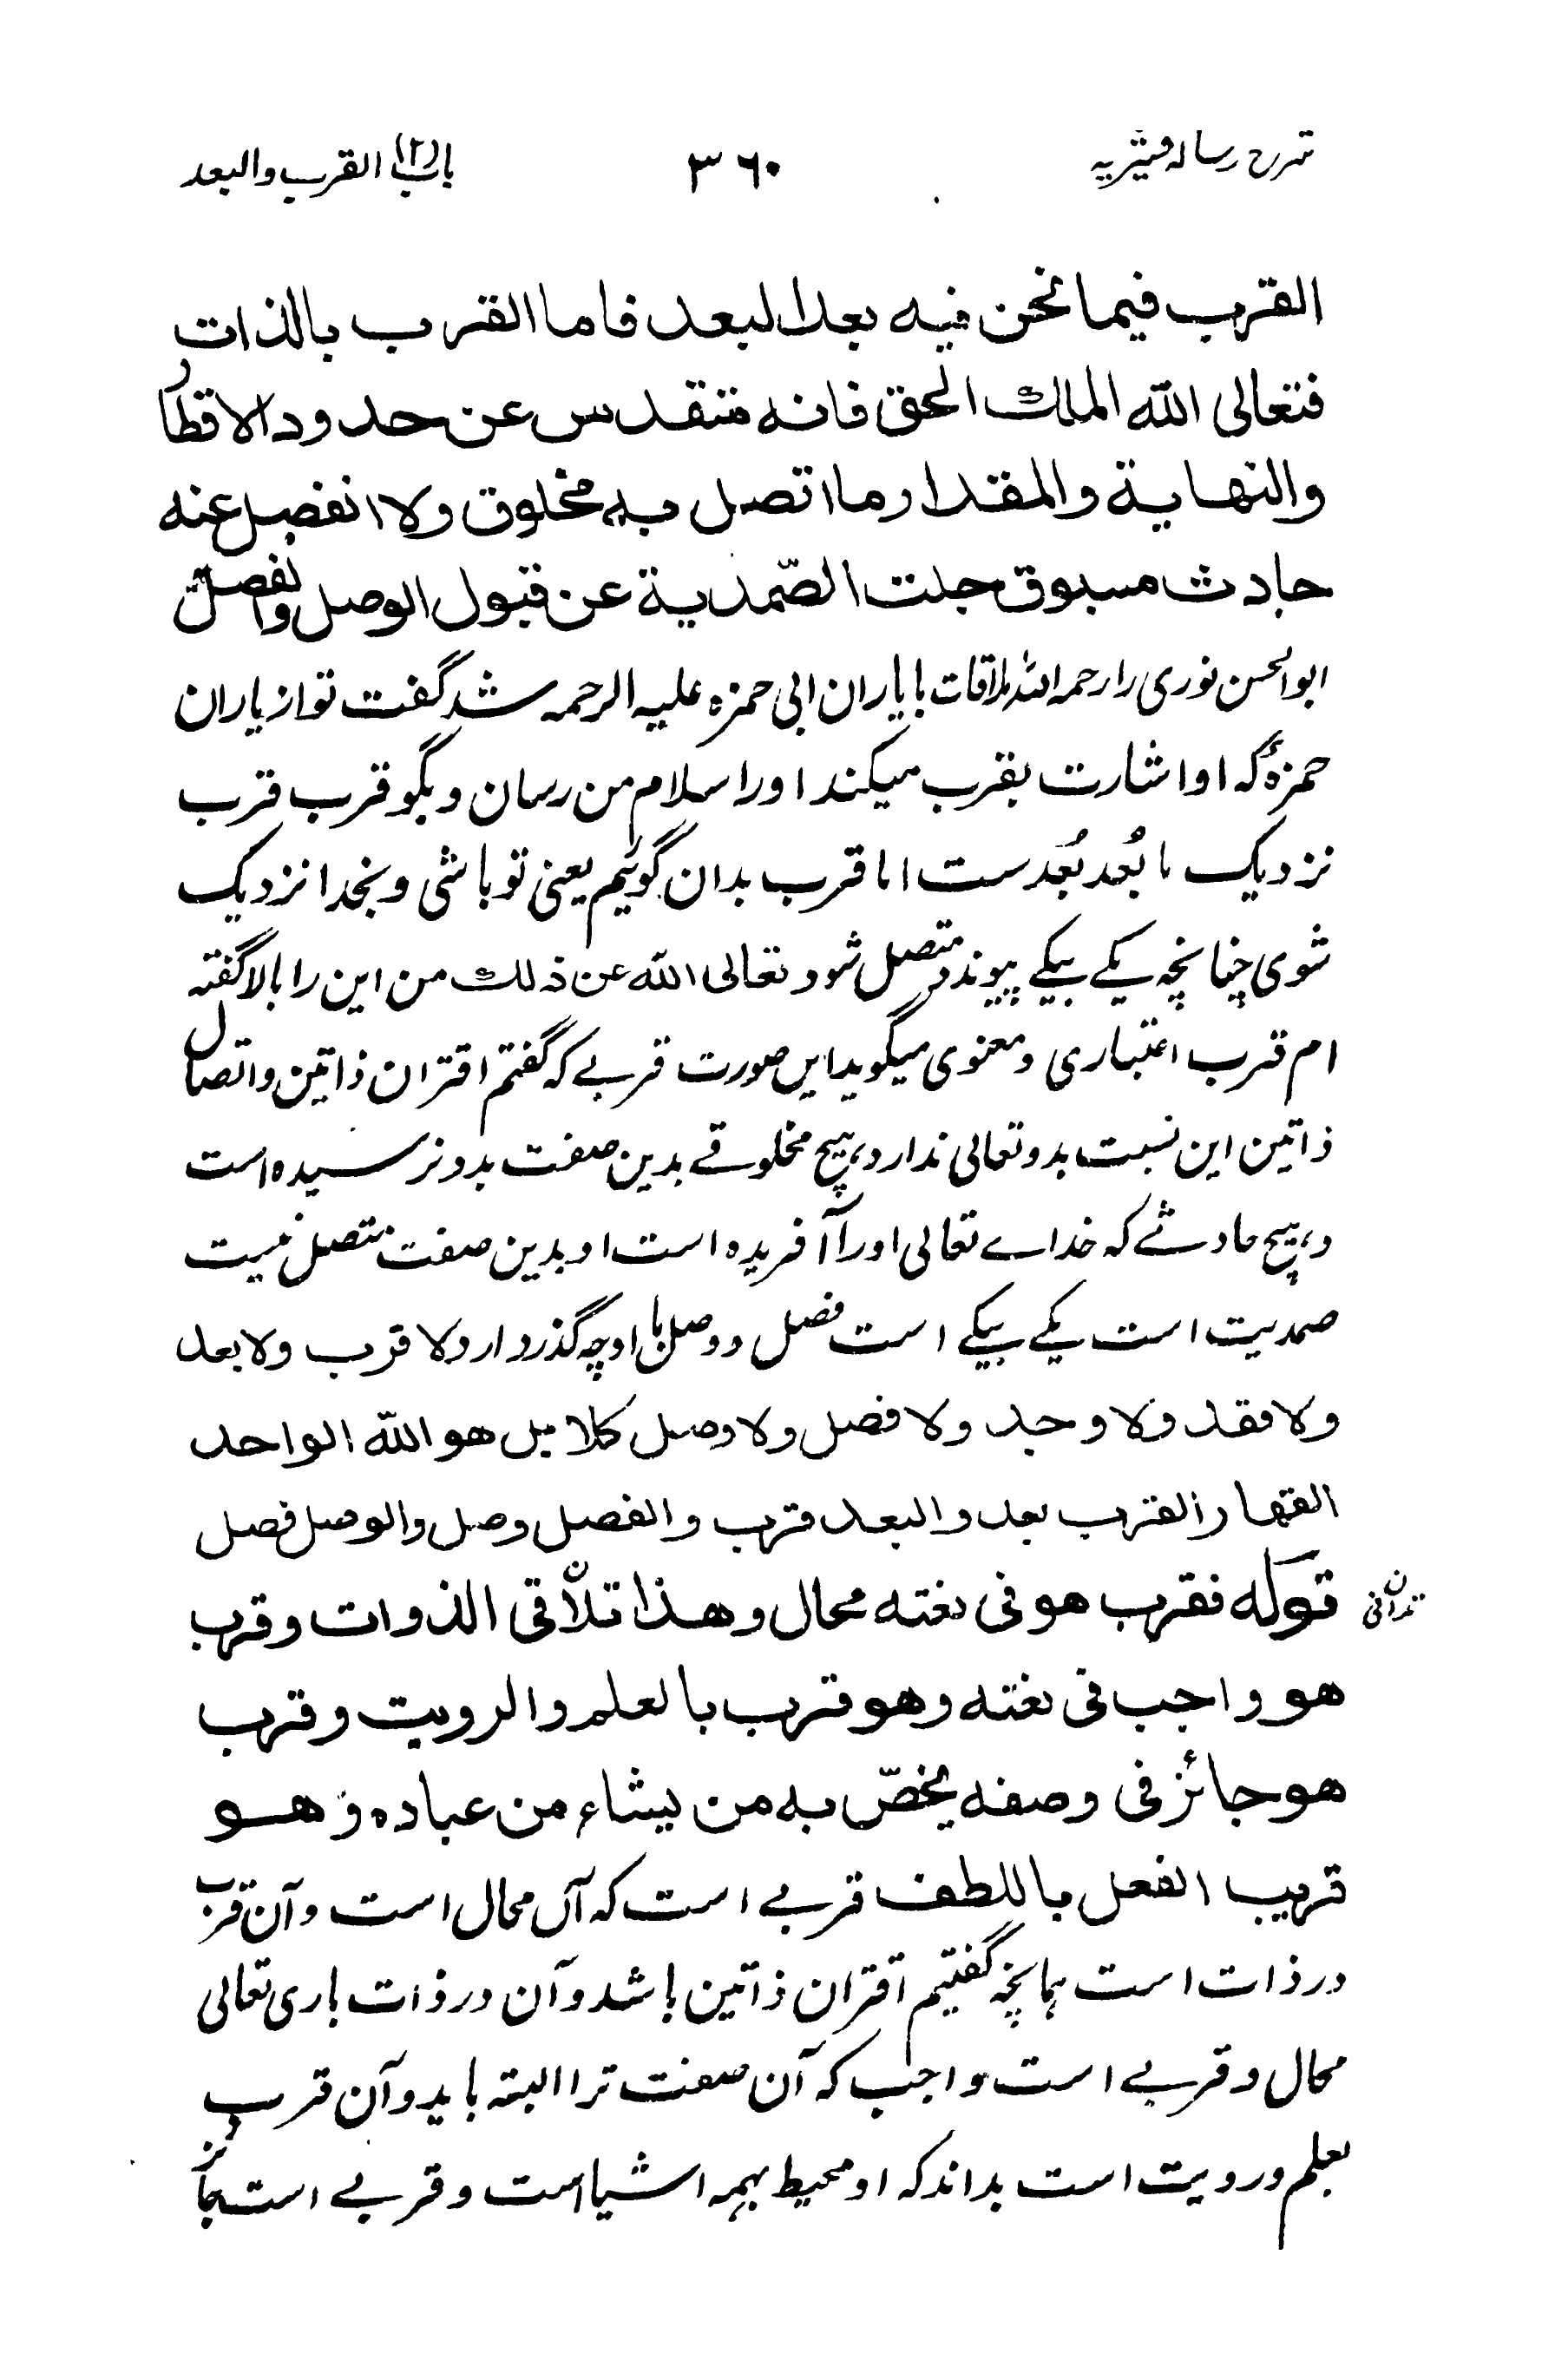 شرح رساله قشیریه ۳۶۰ باب (۲) القرب والبعد
القرب فیما نحن فیه بعد البعد فاما القرب بالذات
فتعالی الله الملك الحق فانه متقدس عن حدود الاقطار
والنهایة والمقدار ما اتصل به مخلوق ولا انفصل عنه
حادث مسبوق جلت الصمدیة عن قبول الوصل والفصل
ابوالحسن نوری را رحمه الله ملاقات با یاران ابی حمزه علیه الرحمه شد گفت تو از یاران
حمزهٔ که او اشارت بقرب میکند او را سلام من رسان و بگو قرب قرب
نزدیک ما بُعد بُعد ست اما قرب بدان گوئیم یعنی تو باشی و بخدا نزدیک
شوی چنانچه یکے بیکے پیوندد متصل شود تعالی الله عن ذلك من این را بالا گفته
ام قرب اعتباری و معنوی میگوید ایں صورت قربے که گفتم اقتران ذاتین واتصال
ذاتین این نسبت بدو تعالی ندارد، هیچ مخلوقے بدین صفت بدو نرسیده است
و هیچ حادثے که خداے تعالی او را آفریده است او بدین صفت متصل نیست
صمدیت است یکے بیکے است فصل و وصل با او چه گذر دارد لا قرب ولا بعد
ولا فقد ولا وجد ولا فصل ولا وصل کلا بل هو الله الواحد
القهار القرب بعد والبعد قرب والفصل وصل والوصل فصل
قوله فقرب هو فی نعته محال وهذا تلاقی الذوات وقرب
تدانی ن
هو واجب فی نعته وهو قرب بالعلم والرویت وقرب
هو جائز فی وصفه یخصّ به من یشاء من عباده وهو
قریب الفعل باللطف قربے است که آں محال است و آن قرب
در ذات است همانچه گفتیم اقتران ذاتین باشد و آن در ذات باری تعالی
محال و قربے است واجب که آن صفت ترا البته باید و آن قرب
بعلم و رویت است بداند که او محیط بهمه اشیا است و قربے است جائز